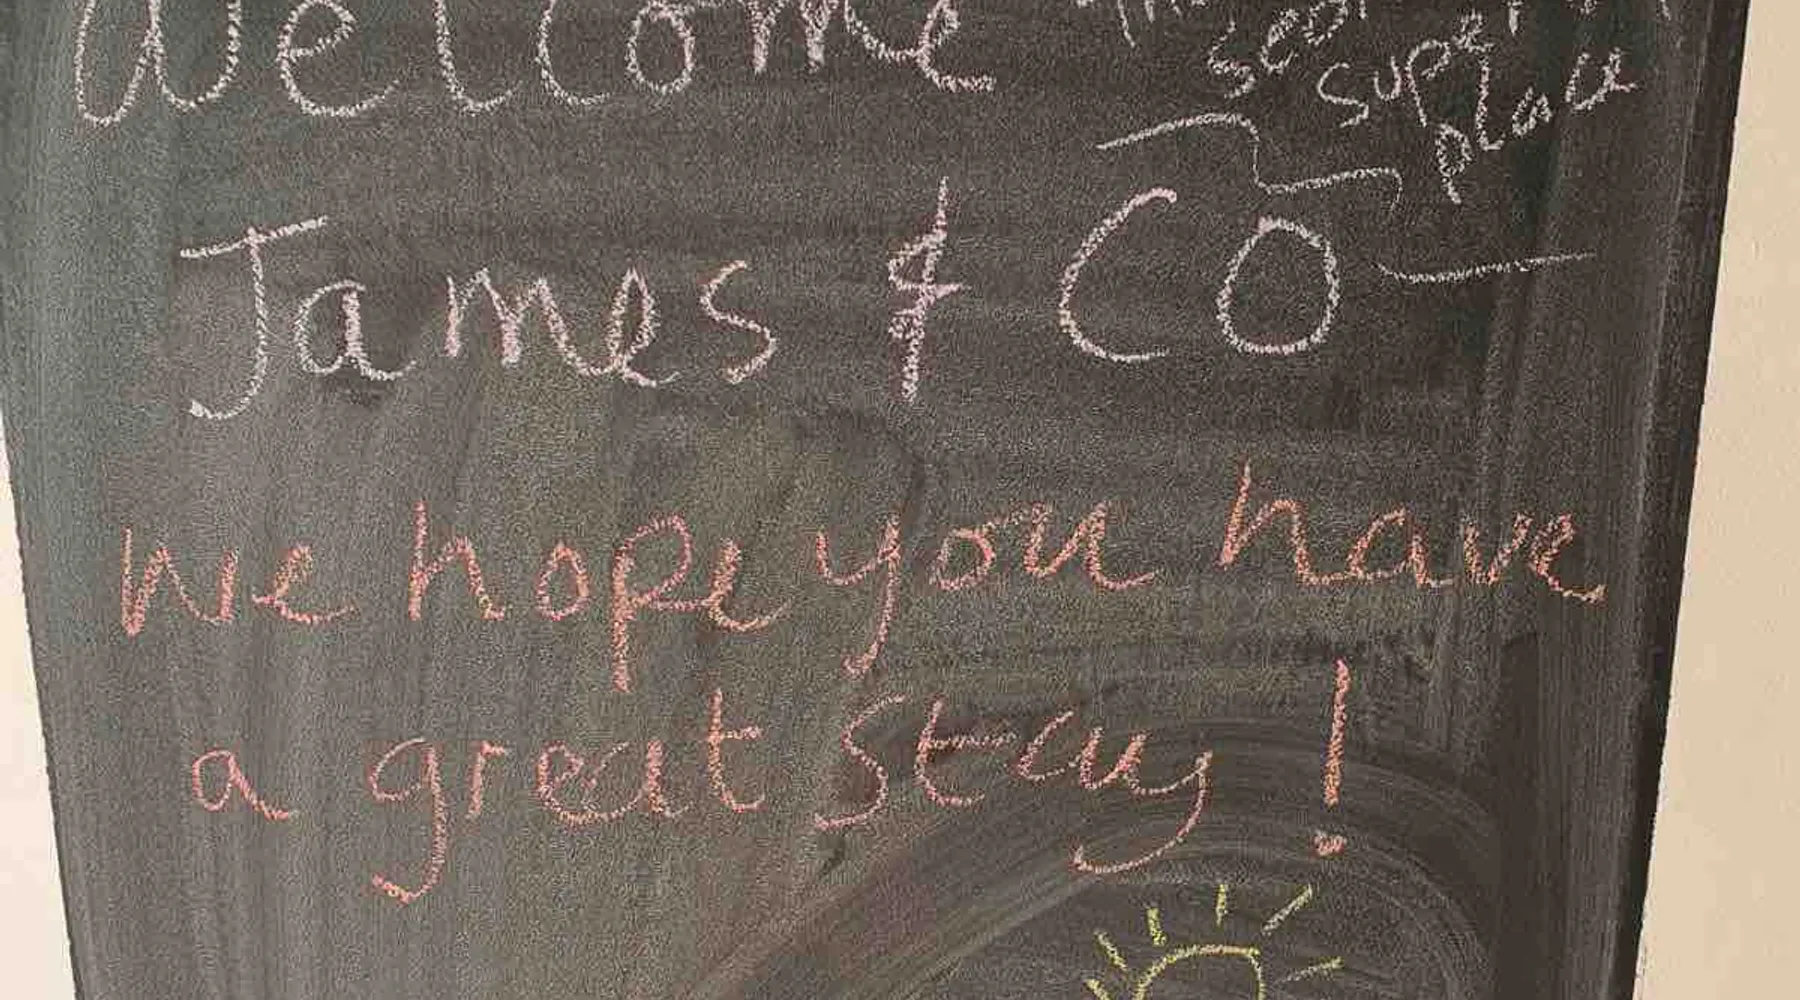 Welcome
super
place
James & CO
We hope you have
a great stay!